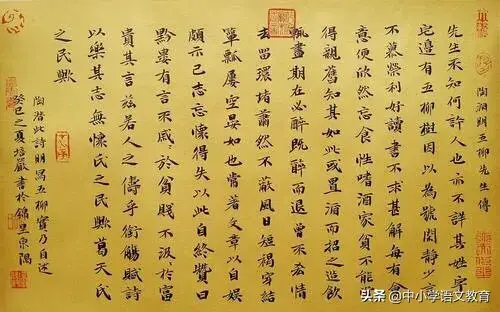 陶淵明五柳先生傳
先生不知何許人也亦不詳其姓字
宅邊有五柳樹因以為號閑靜少言
不慕榮利好讀書不求甚解每有會
意便欣然忘食性嗜酒家貧不能常
得親舊知其如此或置酒而招之造飲
輒盡期在必醉既醉而退曾不吝情
去留環堵蕭然不蔽風日短褐穿結
簞瓢屢空晏如也常著文章以自娛
頗示己志忘懷得失以此自終贊曰
黔婁有言不戚〻於貧賤不汲〻於富
貴其言茲若人之儔乎銜觴賦詩
以樂其志無懷氏之民歟葛天氏
之民歟
陶潛此詩明寫五柳實乃自述
癸巳之夏培嚴書於錦里東隅
头条 @中小学语文教育